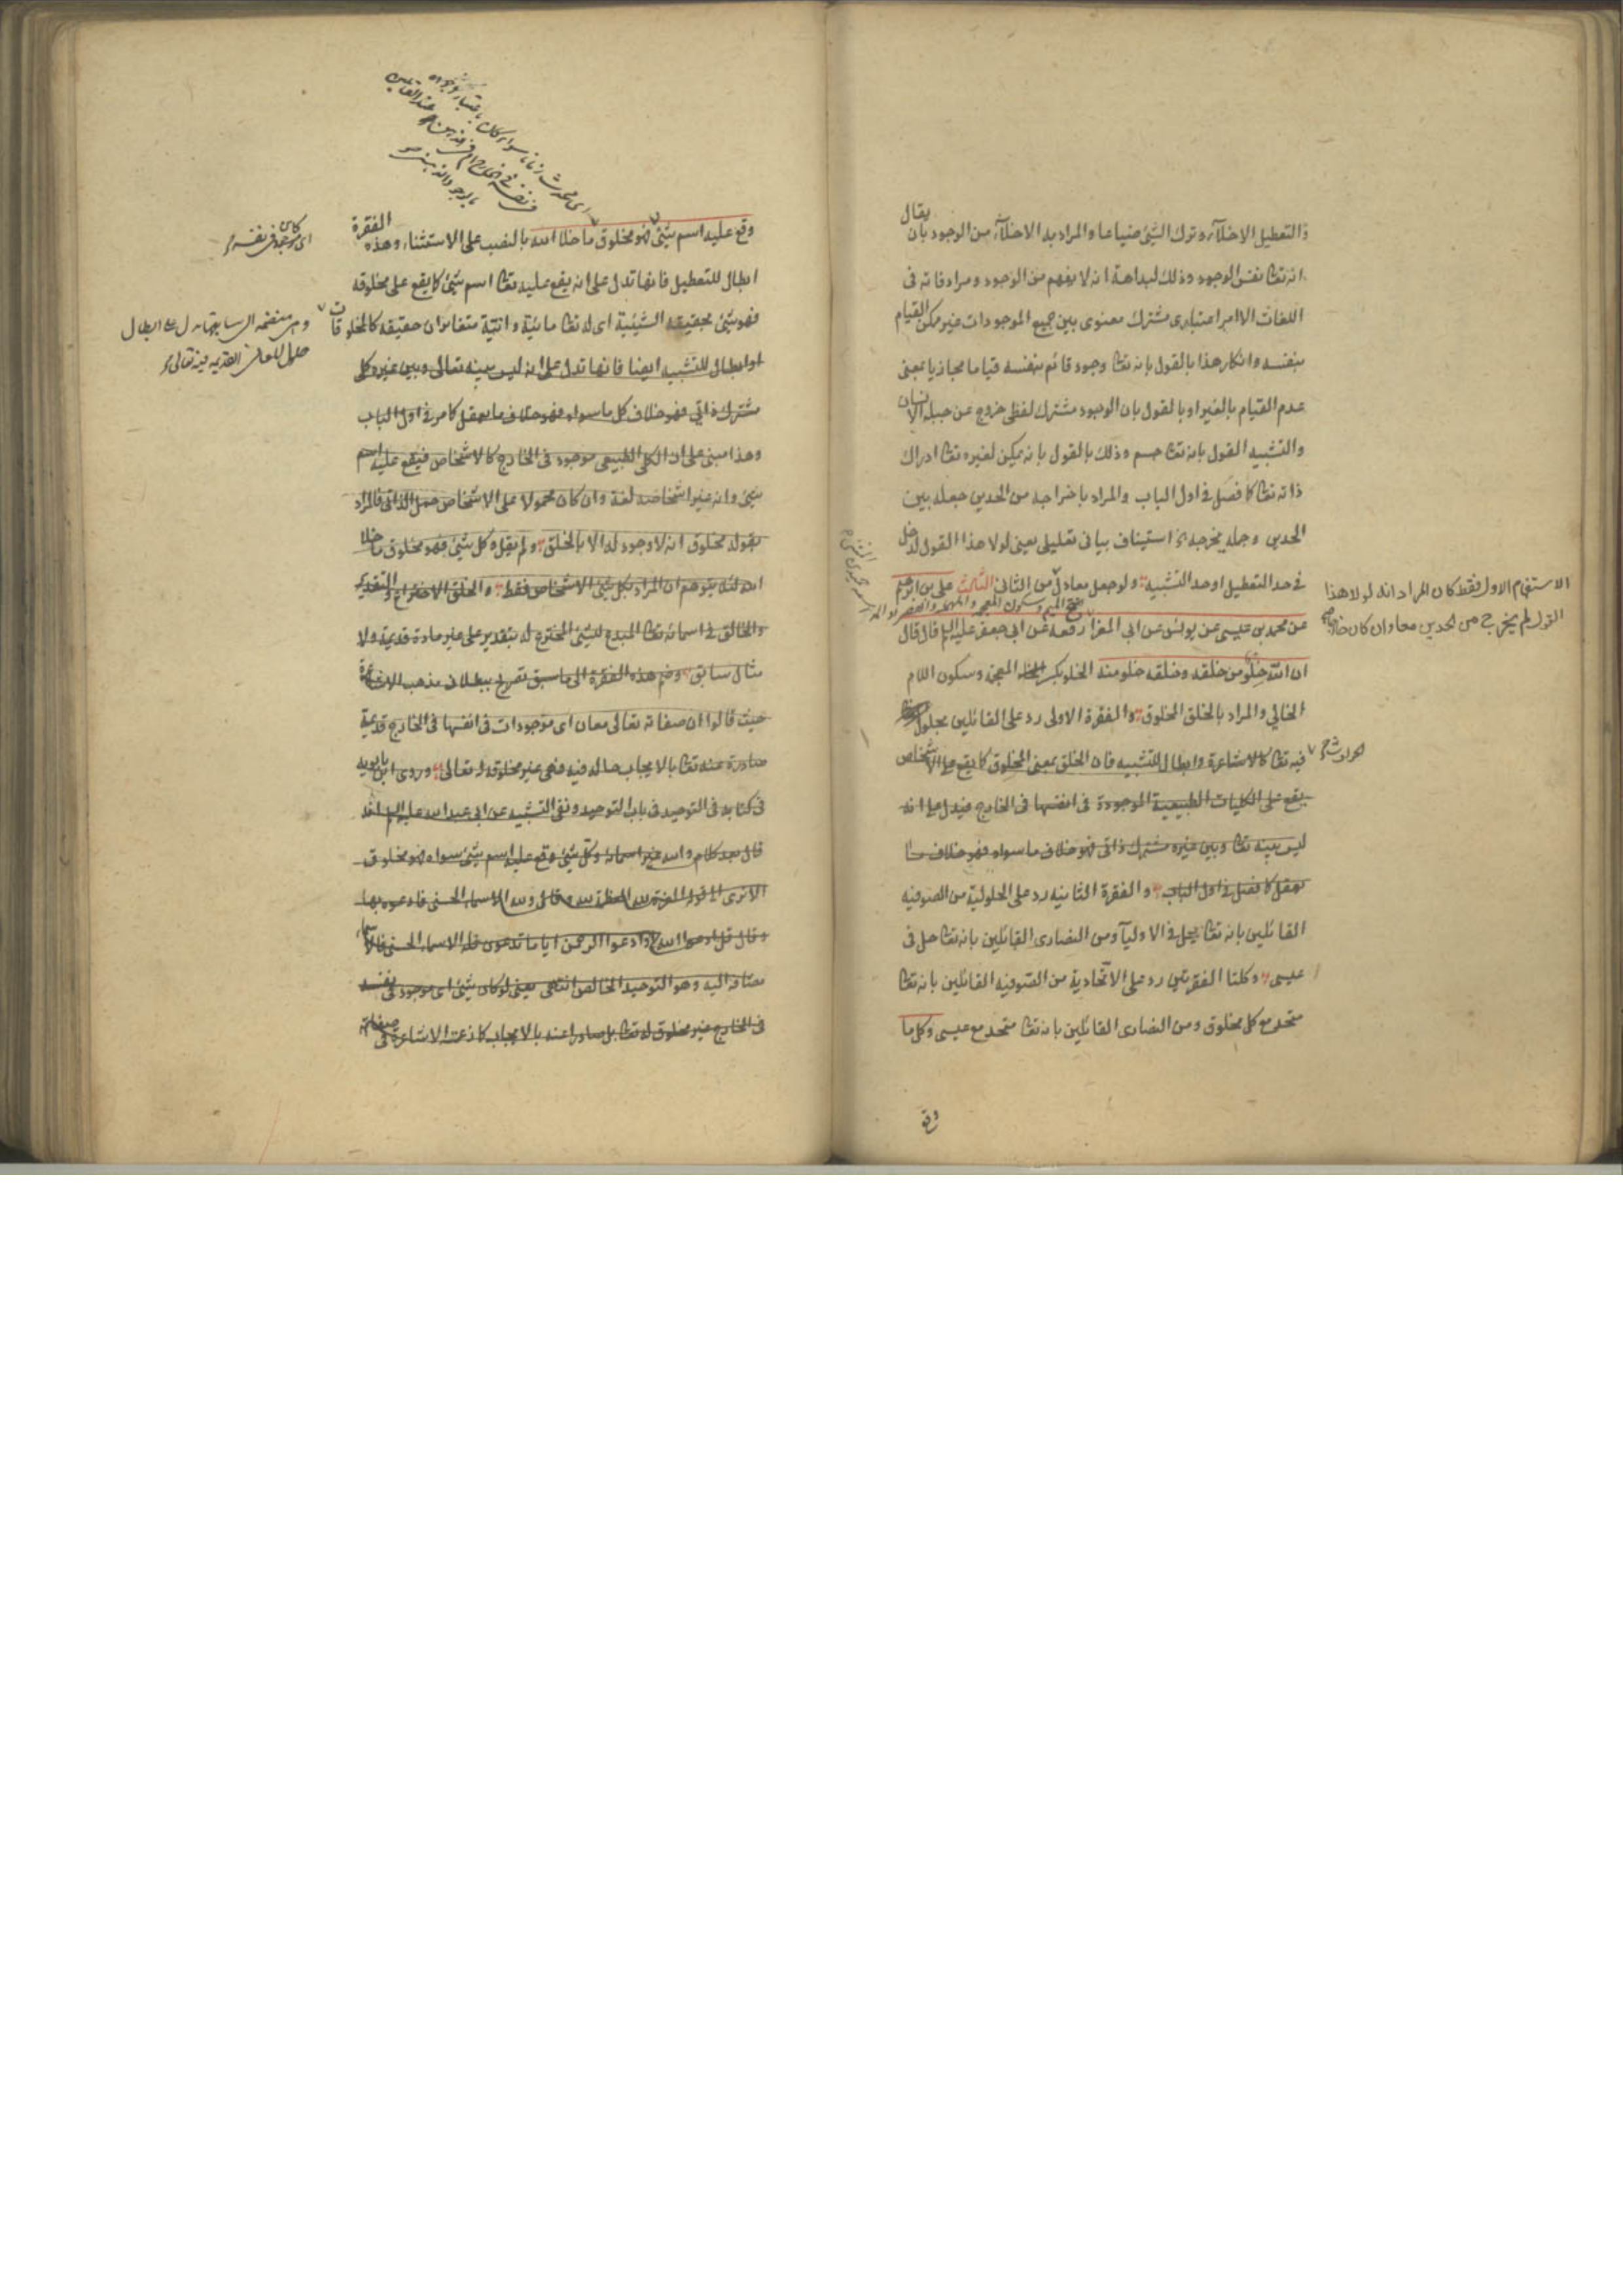 والتعطيل الاخلآء وترك الشئ ضياعا والمراد به الاخلآء من الوجود بان يقال
انه تعا نفس الوجود وذلك لبداهة انه لا يفهم من الوجود ومرادفاته فى
اللغات الا امر اعتبارى مشترك معنوى بين جميع الموجودات غير ممكن القيام
بنفسه وانكار هذا بالقول بانه تعا وجود قائم بنفسه قياما مجازيا بمعنى
عدم القيام بالغير او بالقول بان الوجود مشترك لفظى خروج عن جبلة الانسان
والتشبيه القول بانه تعا جسم وذلك بالقول بانه يمكن لغيره تعا ادراك
ذاته تعا كما فصل فى اول الباب والمراد باخراجه من الحدين جعله بين
الحدين وجملة يخرجه استيناف بيانى تعليلى يعنى لولا هذا القول لدخل
فى حد التعطيل او حد التشبيه ولو جعل معادل من الثانى الثالث على بن ابرهيم
الاستفهام الاول فقط كان المراد انه لولا هذا
القول لم يخرج من الحدين معا وان كان
عن محمد بن عيسى عن يونس عن ابى المغرا رفعه عن ابى جعفر عليه السلم قال قال
بفتح الميم وسكون المعجمة والمهملة
ان الله خلو من خلقه وخلقه خلو منه الخلو بكسر الخاء المعجمة وسكون اللام
الخالى والمراد بالخلق المخلوق والفقرة الاولى رد على القائلين بحلول
الحوادث
فيه تعا كالاشاعرة وابطال للتشبيه فان الخلق بمعنى المخلوق كما يقع على الاشخاص
يقع على الكليات الطبيعية الموجودة فى انفسها فى الخارج فيدل على انه
ليس بينه تعا وبين غيره مشترك ذاتى فهو خلاف ما سواه فهو خلاف ما
يعقل كما فصل فى اول الباب والفقرة الثانيه رد على الحلولية من الصوفيه
القائلين بانه تعا يحل فى الاوليآ ومن النصارى القائلين بانه تعا حل فى
عيسى وكلتا الفقرتين رد على الاتحادية من الصوفيه القائلين بانه تعا
متحد مع كل مخلوق ومن النصارى القائلين بانه تعا متحد مع عيسى وكل ما
وقع
وقع عليه اسم شئ فهو مخلوق ما خلا الله بالنصب على الاستثناء وهذه الفقرة
ابطال للتعطيل فانها تدل على انه يقع عليه تعا اسم شئ كما يقع على مخلوقه
فهو شئ بحقيقة الشيئية اى له تعا مائية وانية متغايران حقيقة كالمخلوقات
او ابطال للتشبيه ايضا فانها تدل على انه ليس بينه تعالى وبين غيره كلى
مشترك ذاتى فهو خلاف كل ما سواه فهو خلاف ما يعقل كما مر فى اول الباب
وهذا مبنى على ان الكلى الطبيعى موجود فى الخارج كالاشخاص فيقع عليه اسم
شئ وانه غير اشخاصه لغة وان كان محمولا على الاشخاص حمل الذاتى فالمراد
بقوله مخلوق انه لا وجود له الا بالخلق ولم يقل وكل شئ فهو مخلوق ما خلا
الله لئلا يتوهم ان المراد بكل شئ الاشخاص فقط والخلق الاختراع والتقدير
والخالق فى اسمائه تعا المبدع للشئ المخترع له بتقدير على غير مادة قديمة ولا
مثال سابق وضم هذه الفقرة الى ما سبق تصريح ببطلان مذهب الاشاعرة
حيث قالوا ان صفاته تعالى معان اى موجودات فى انفسها فى الخارج قديمة
صادرة عنه تعا بالايجاب حالة فيه فهى غير مخلوقة له تعالى وروى ابن بابويه
فى كتابه فى التوحيد فى باب التوحيد ونفى التشبيه عن ابى عبد الله عليه السلم انه
قال بعد كلام والله غير اسمائه وكل شئ وقع عليه اسم شئ سواه فهو مخلوق
الا ترى الى قوله العزة لله العظمة لله وقال ولله الاسماء الحسنى فادعوه بها
وقال قل ادعوا الله او ادعوا الرحمن ايا ما تدعون فله الاسماء الحسنى فالاسماء
مضافة اليه وهو التوحيد الخالص انتهى يعنى لو كان شئ اى موجود فى نفسه
فى الخارج غير مخلوق له تعا بل صادرا عنه بالايجاب كما زعمته الاشاعرة فى صفاته